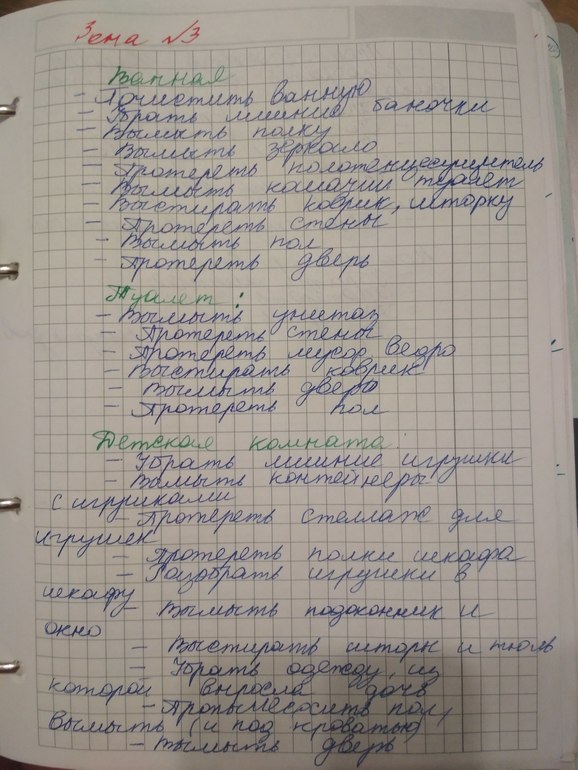 Зона №3
Ванная
- Почистить ванную
- Убрать лишние баночки
- Вымыть полку
- Вымыть зеркало
- Протереть полотенцесушитель
- Вымыть кошачий туалет
- Выстирать коврик, шторку
- Протереть стены
- Вымыть пол
- Протереть дверь
Туалет:
- Вымыть унитаз
- Протереть стены
- Протереть мусор ведро
- Выстирать коврик
- Вымыть дверь
- Протереть пол
Детская комната:
- Убрать лишние игрушки
- Вымыть контейнеры
с игрушками
- Протереть стеллаж для
игрушек
- Протереть полки шкафа
- Разобрать игрушки в
шкафу
- Вымыть подоконник и
окно
- Выстирать шторы и тюль
- Убрать одежду, из
которой выросла дочь
- Пропылесосить пол,
вымыть (и под кроватью)
- Вымыть дверь